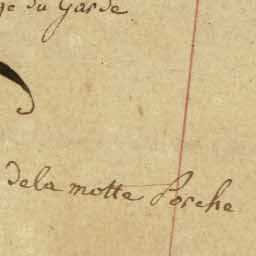 ge du Garde
dela motte Porche